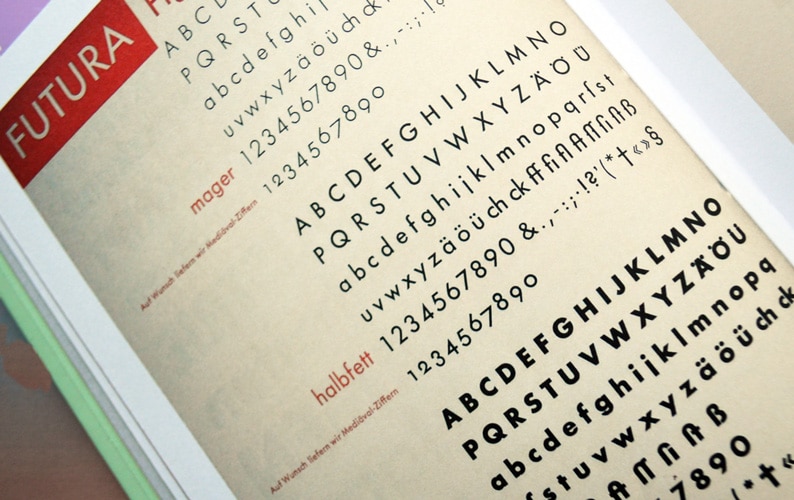 FUTURA
A B C D
P Q R S T U
a b c d e f g h i j k l
u v w x y z ä ö ü ch ck
1 2 3 4 5 6 7 8 9 0 & . , - : ; · ! ?
mager 1 2 3 4 5 6 7 8 9 0
Auf Wunsch liefern wir Mediäval-Ziffern
A B C D E F G H I J K L M N O
P Q R S T U V W X Y Z Ä Ö Ü
a b c d e f g h i j k l m n o p q r ſ s t
u v w x y z ä ö ü ch ck ff fi fl ß
1 2 3 4 5 6 7 8 9 0 & . , - : ; · ! ? ' ( * † « » §
halbfett 1 2 3 4 5 6 7 8 9 0
Auf Wunsch liefern wir Mediäval-Ziffern
A B C D E F G H I J K L M N O
P Q R S T U V W X Y Z Ä Ö Ü
a b c d e f g h i j k l m n o p q
s t u v w x y z ä ö ü ch ck
ß
7 8 9 0
' ( * †